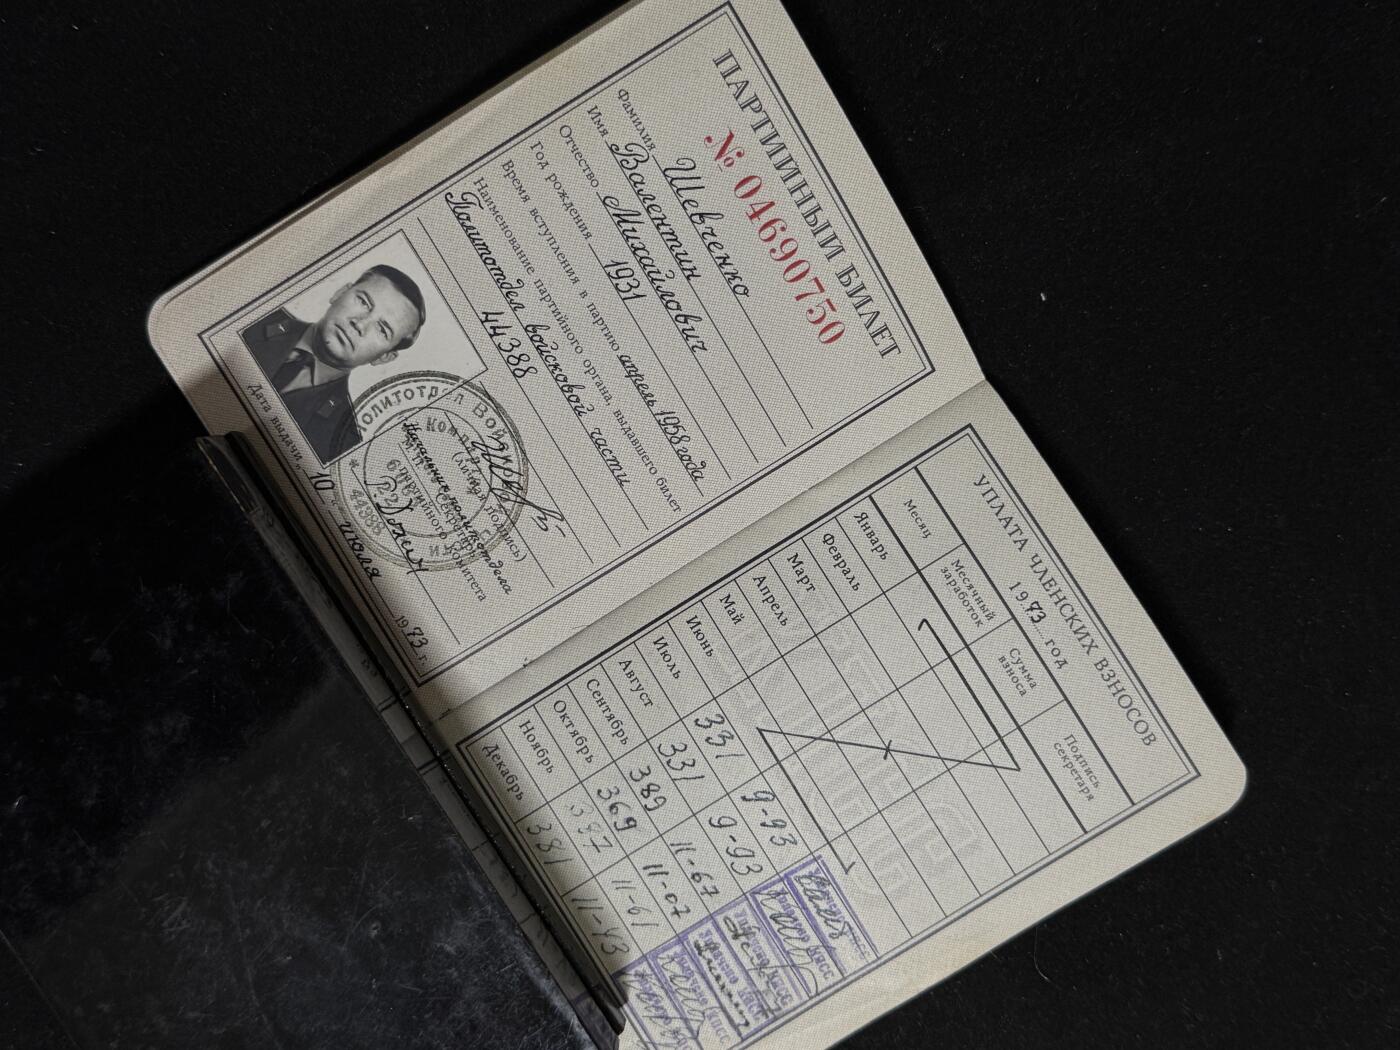 ПАРТИЙНЫЙ БИЛЕТ
№ 04690750
Фамилия Шевченко
Имя Валентин
Отчество Михайлович
Год рождения 1931
Время вступления в партию апрель 1958 года
Наименование партийного органа, выдавшего билет
Политотдел войсковой части
44388
(личная подпись)
Начальник политотдела
Дата выдачи „10 “ июля 1973 г.
УПЛАТА ЧЛЕНСКИХ ВЗНОСОВ
1973 год
Месяц Месячный заработок Сумма взноса Подпись секретаря
Январь
Февраль
Март
Апрель
Май
Июнь 331 9-93
Июль 331 9-93
Август 389 11-67
Сентябрь 369 11-07
Октябрь 387 11-61
Ноябрь 381 11-43
Декабрь